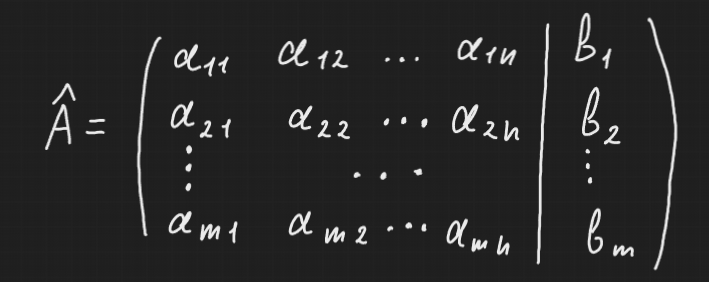 Â = ( a₁₁ a₁₂ ... a₁ₙ | b₁
a₂₁ a₂₂ ... a₂ₙ | b₂
⋮ ... ⋮
aₘ₁ aₘ₂ ... aₘₙ | bₘ )